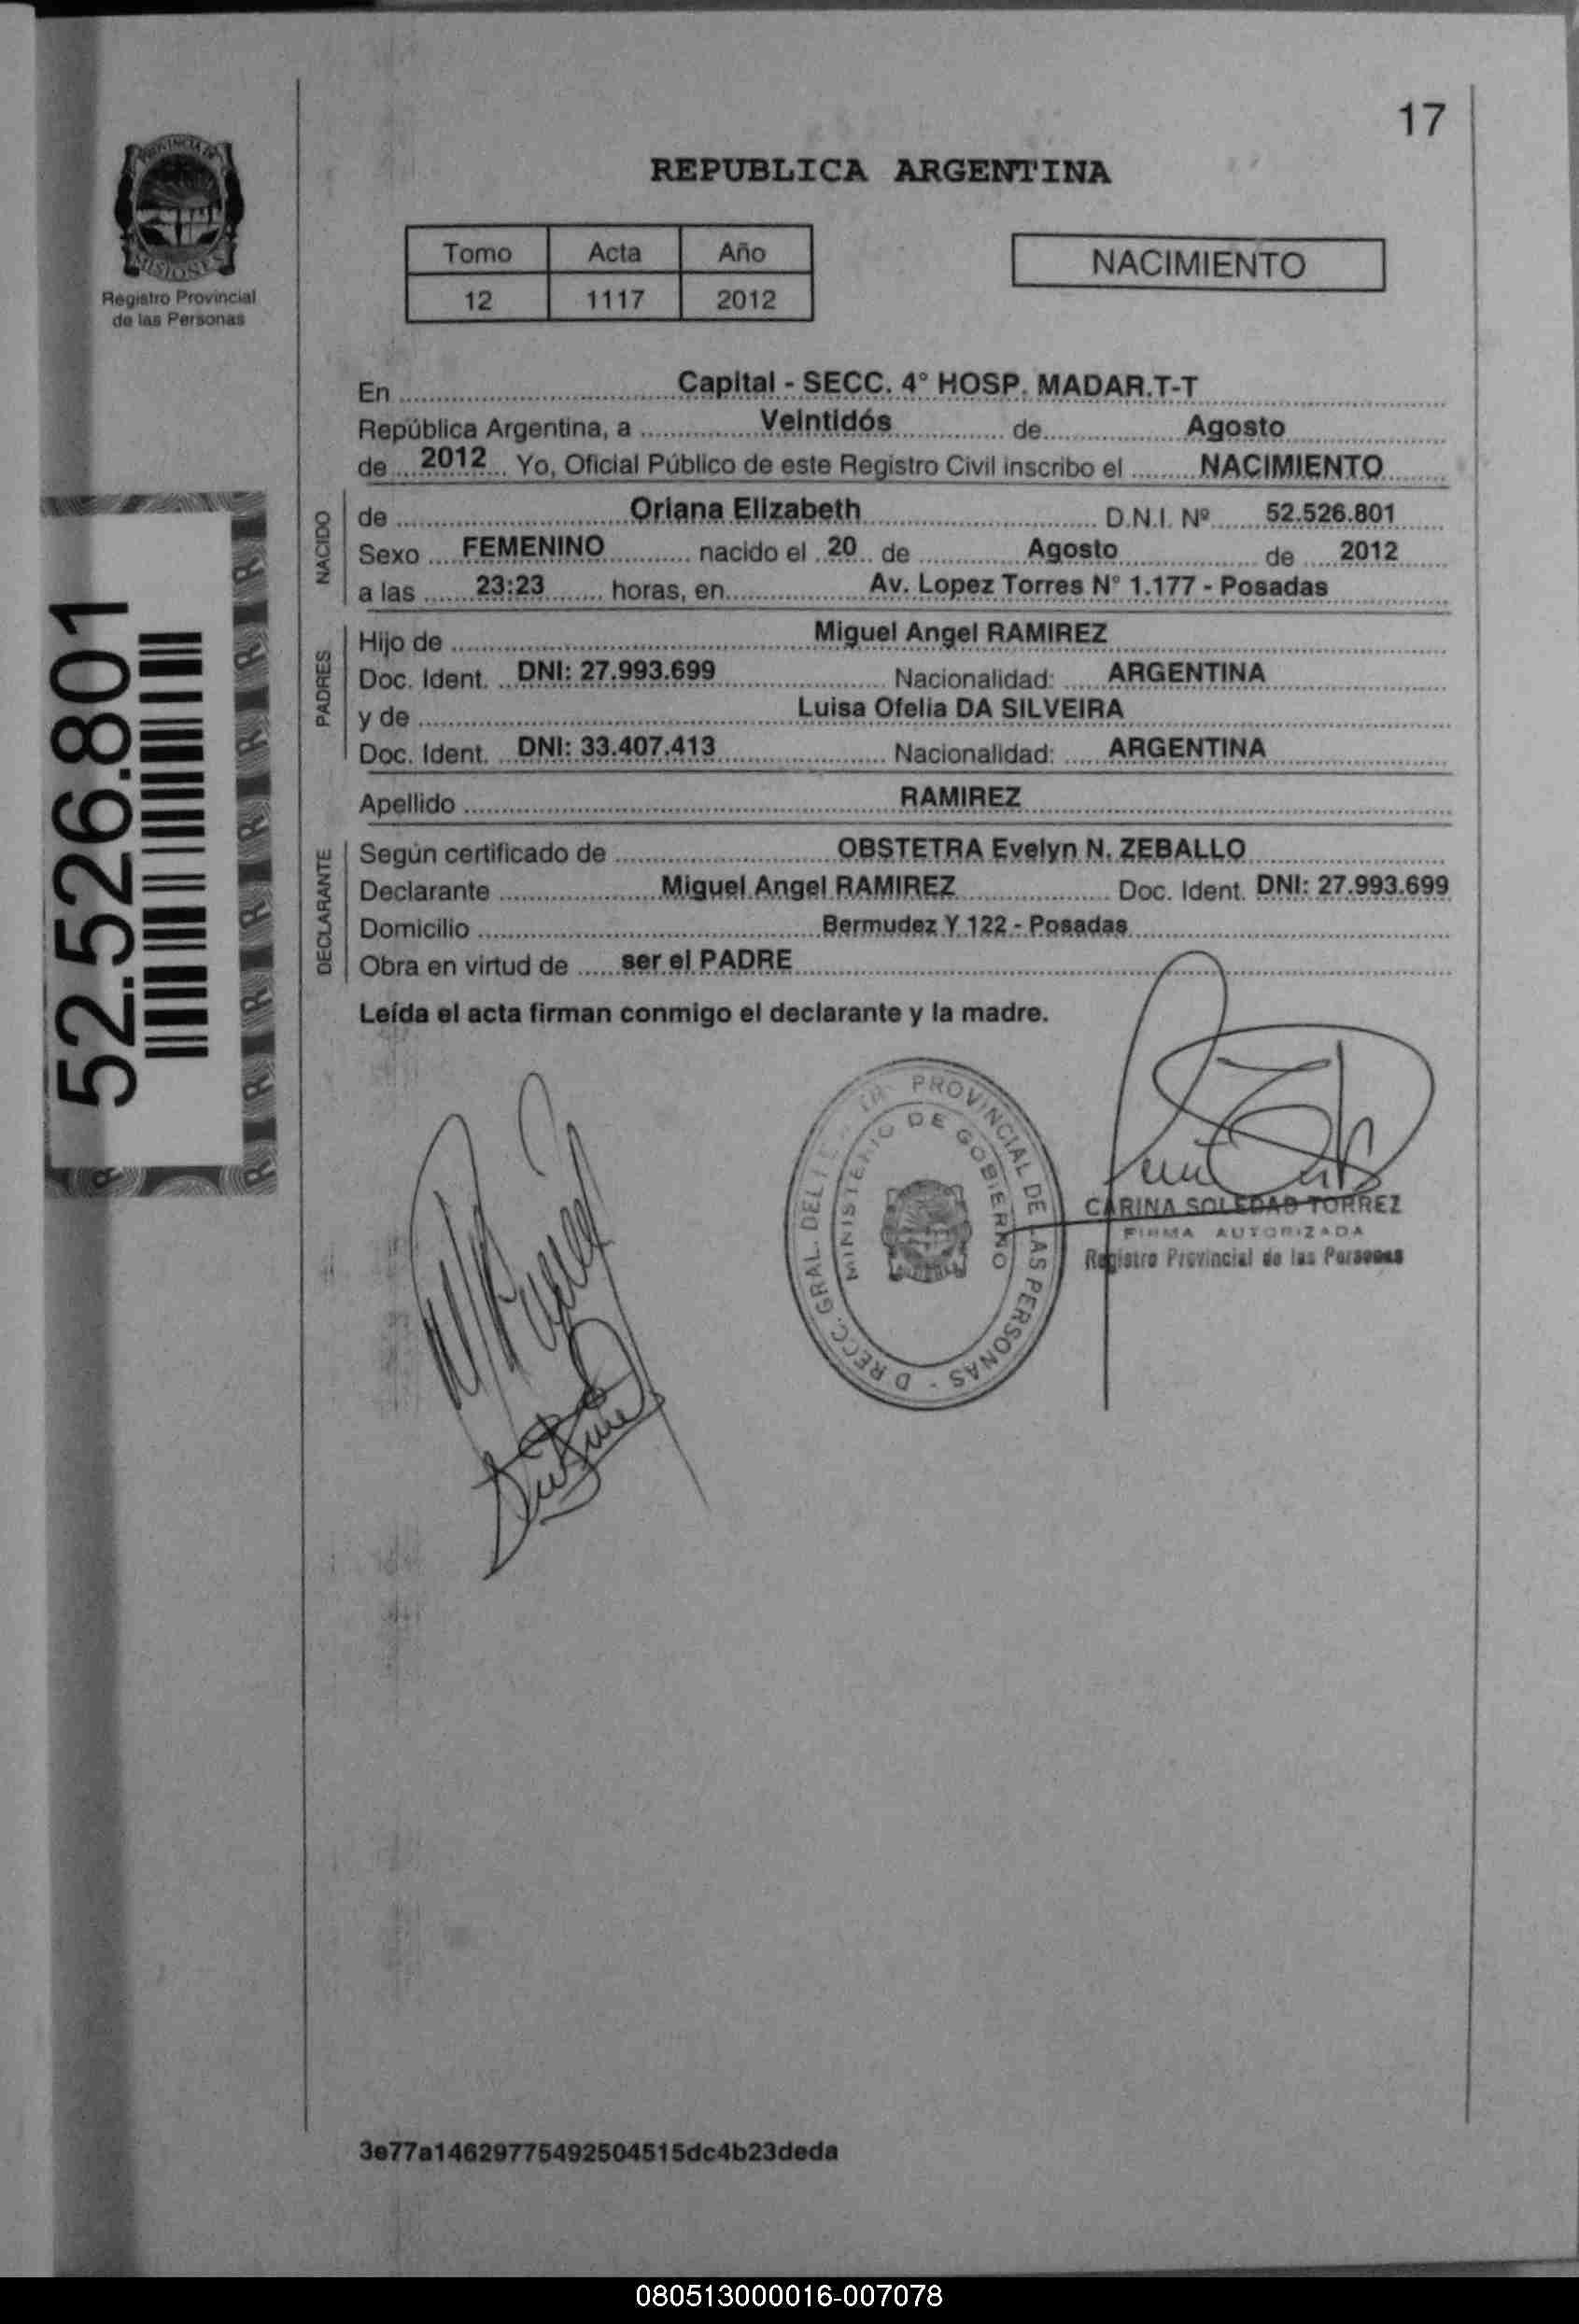 17
PROVINCIA DE
MISIONES
Registro Provincial
de las Personas
REPUBLICA ARGENTINA
Tomo Acta Año
12 1117 2012
NACIMIENTO
En Capital - SECC. 4° HOSP. MADAR.T-T
República Argentina, a Veintidós de Agosto
de 2012 Yo, Oficial Público de este Registro Civil inscribo el NACIMIENTO
NACIDO
de Oriana Elizabeth D.N.I. Nº 52.526.801
Sexo FEMENINO nacido el 20 de Agosto de 2012
a las 23:23 horas, en Av. Lopez Torres N° 1.177 - Posadas
PADRES
Hijo de Miguel Angel RAMIREZ
Doc. Ident. DNI: 27.993.699 Nacionalidad: ARGENTINA
y de Luisa Ofelia DA SILVEIRA
Doc. Ident. DNI: 33.407.413 Nacionalidad: ARGENTINA
Apellido RAMIREZ
DECLARANTE
Según certificado de OBSTETRA Evelyn N. ZEBALLO
Declarante Miguel Angel RAMIREZ Doc. Ident. DNI: 27.993.699
Domicilio Bermudez Y 122 - Posadas
Obra en virtud de ser el PADRE
Leída el acta firman conmigo el declarante y la madre.
52.526.801
PROVINCIAL DE LAS PERSONAS - D RECC. GRAL. DEL
MINISTERIO DE GOBIERNO
CARINA SOLEDAD TORREZ
FIRMA AUTORIZADA
Registro Provincial de las Personas
3e77a14629775492504515dc4b23deda
080513000016-007078